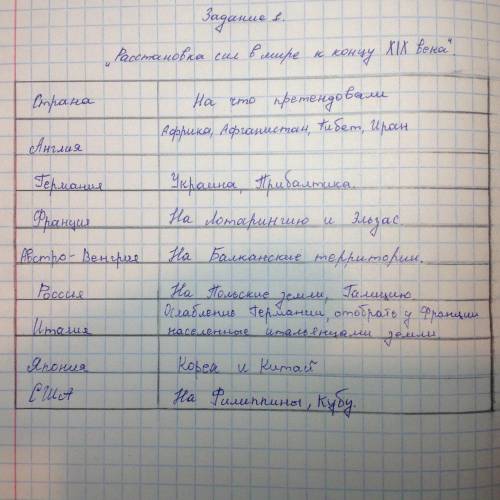 Задание 1.
"Расстановка сил в мире к концу XIX века".
Страна На что претендовали
Англия Африка, Афганистан, Тибет, Иран
Германия Украина, Прибалтика.
Франция На Лотарингию и Эльзас.
Австро-Венгрия На Балканские территории.
Россия На Польские земли, Галицию
Италия Ослабление Германии, отобрать у Франции
населенные итальянцами земли
Япония Корея и Китай
США На Филиппины, Кубу.